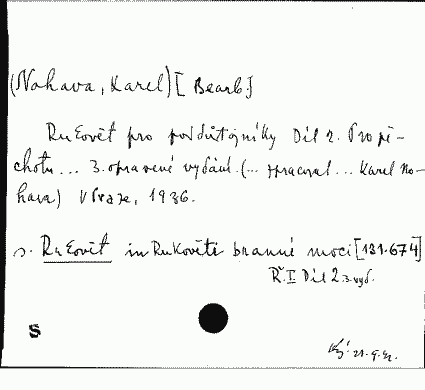 (Nohava, Karel) [Bearb.]
Rukověť pro poddůstojníky Díl 2. Pro pě-
chotu ... 3. opravené vydání. (... zpracoval ... Karel No-
hava) V Praze, 1936.
s. Rukověť in Rukověti branné moci [131.674]
Ř. I Díl 2 3. vyd.
S